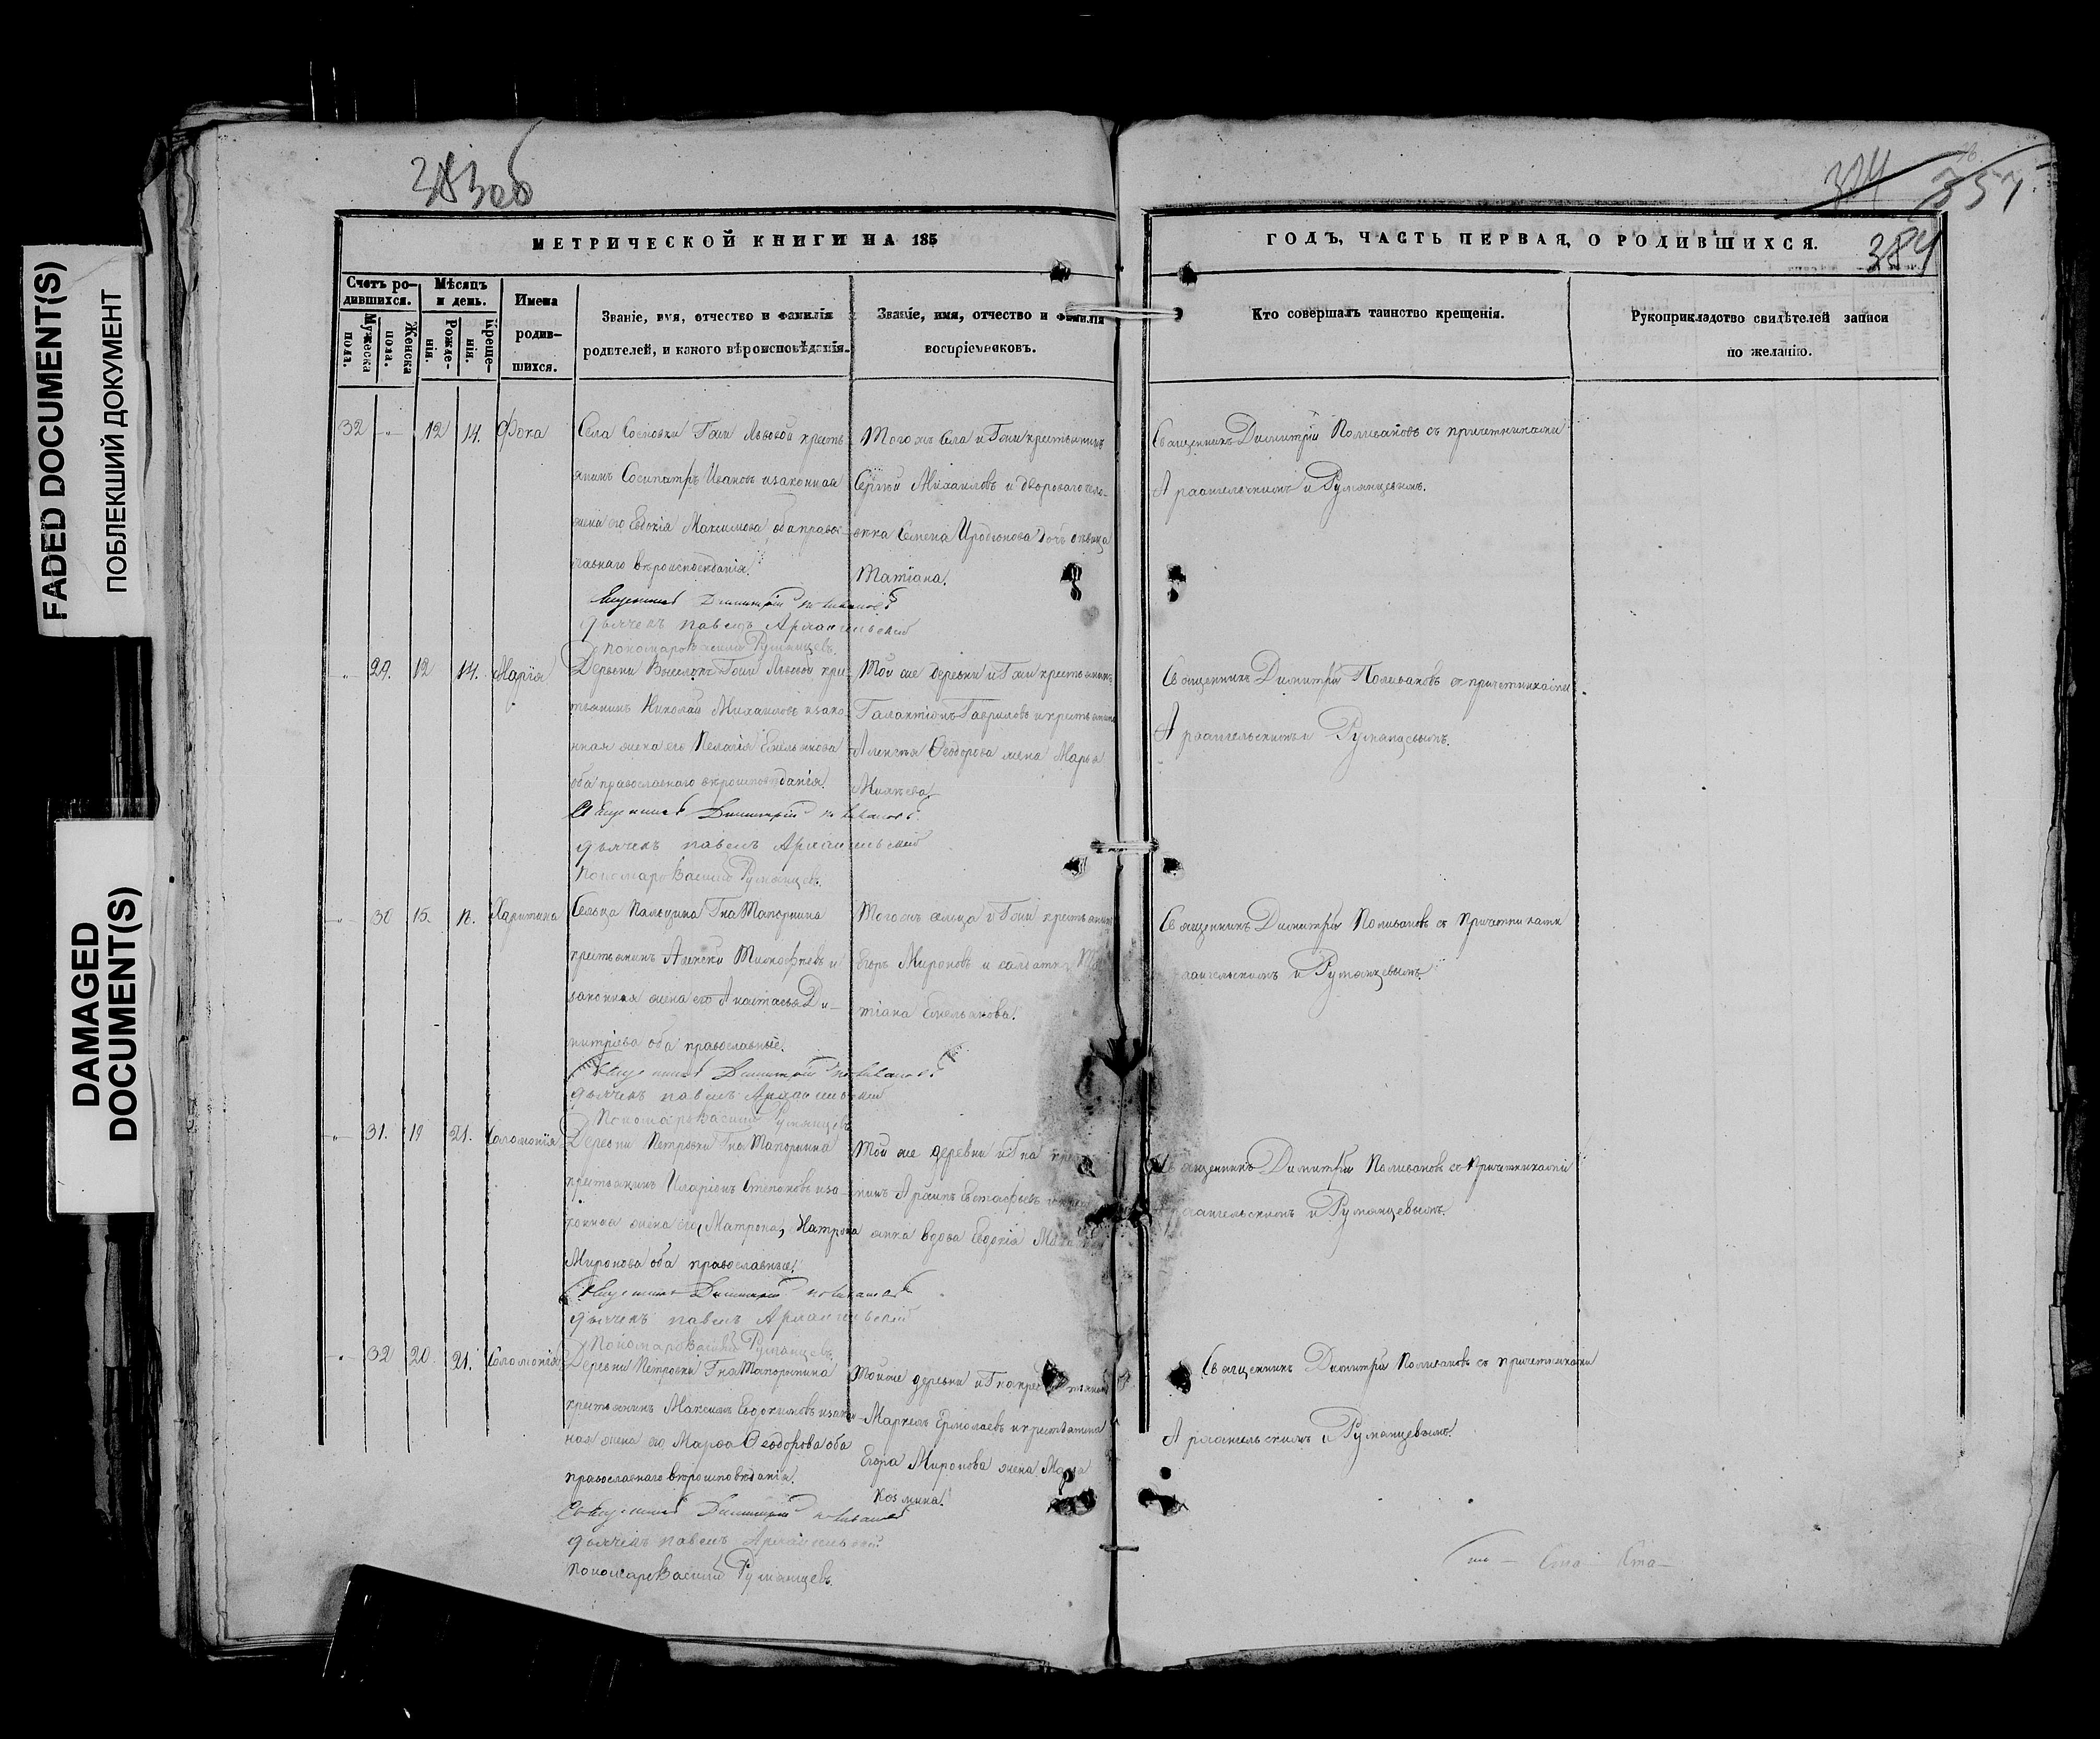 FADED DOCUMENT(S)
ПОБЛЕКШИЙ ДОКУМЕНТ
DAMAGED
DOCUMENT(S)
383 об
384
357
384
МЕТРИЧЕСКОЙ КНИГИ НА 185
ГОДЪ, ЧАСТЬ ПЕРВАЯ, О РОДИВШИХСЯ.
Счетъ ро-
дившихся.
Мужеска
пола.
Женска
пола.
Мѣсяцъ
и день.
Рожде-
нія.
Креще-
нія.
Имена
родив-
шихся.
Званіе, имя, отчество и фамилія
родителей, и какого вѣроисповѣданія.
Званіе, имя, отчество и фамилія
воспріемниковъ.
Кто совершалъ таинство крещенія.
Рукоприкладство свидѣтелей записи
по желанію.
32 12 14. Фока
Села Сосновки Гжи Львовой кресть
янинъ Сосипатръ Ивановъ и законная
жена его Евдокія Максимова, оба право
славнаго вѣроисповѣданія.
Священникъ Димитрій Поливановъ
дьячекъ павелъ Архангельскій
пономарь Василій Румянцевъ.
Тогожъ села и Гжи крестьянинъ
Сергѣй Михаиловъ и двороваго чело-
вѣка Семена Иродіонова дочь
Татіана.
Священникъ Димитрій Поливановъ съ причетниками
Архангельскимъ и Румянцевымъ.
29. 12 14. Марія
Деревни Гжи Львовой кре-
стьянинъ Николай Михаиловъ и зако-
нная жена его Пелагія Емельянова
оба православнаго вѣроисповѣданія.
Священникъ Димитрій Поливановъ
дьячекъ павелъ Архангельскій
Пономарь Василій Румянцевъ.
Той же деревни и Гжи крестьянинъ
Галактіонъ Гавриловъ и крестьянина
Алексѣя Ѳеодорова жена Марья
Священникъ Димитрій Поливановъ съ причетниками
Архангельскимъ и Румянцевымъ.
30 15. Харитина
Сельца Пальцина Гна
крестьянинъ Алексѣй Тимофѣевъ и
законная жена его Анастасья Ди-
митріева оба православные.
Священникъ Димитрій Поливановъ
дьячекъ павелъ Архангельскій
Пономарь Василій Румянцевъ
Тогожъ сельца и Гжи крестьянинъ
Егоръ Мироновъ и солдатка
тіана Емельянова.
Священникъ Димитрій Поливановъ съ Причетниками
Архангельскимъ и Румянцевымъ.
31. 19 21. Соломонія
Деревни Петровки Гна
крестьянинъ Иларіонъ Степановъ и за-
конная жена его (Матрона) Матрона
Миронова оба православные.
Священникъ Димитрій Поливановъ
дьячекъ павелъ Архангельскій
Пономарь Василій Румянцевъ.
Той же деревни и Гна
нинъ Архипъ Евстафьевъ
янка вдова Евдокія
Священникъ Димитрій Поливановъ съ Причетниками
Архангельскимъ и Румянцевымъ.
32 20. 21. Соломонія
Деревни Петровки Гна
крестьянинъ Максимъ Евдокимовъ и закон-
ная жена его Марѳа Ѳеодорова оба
православнаго вѣроисповѣданія.
Священникъ Димитрій Поливановъ
дьячекъ павелъ Архангельскій
Пономарь Василій Румянцевъ.
Той же деревни и Гна крестьянинъ
Маркелъ Ермолаевъ и крестьянина
Егора Миронова жена
Козмина.
Священникъ Димитрій Поливановъ съ причетниками
Архангельскимъ и Румянцевымъ.